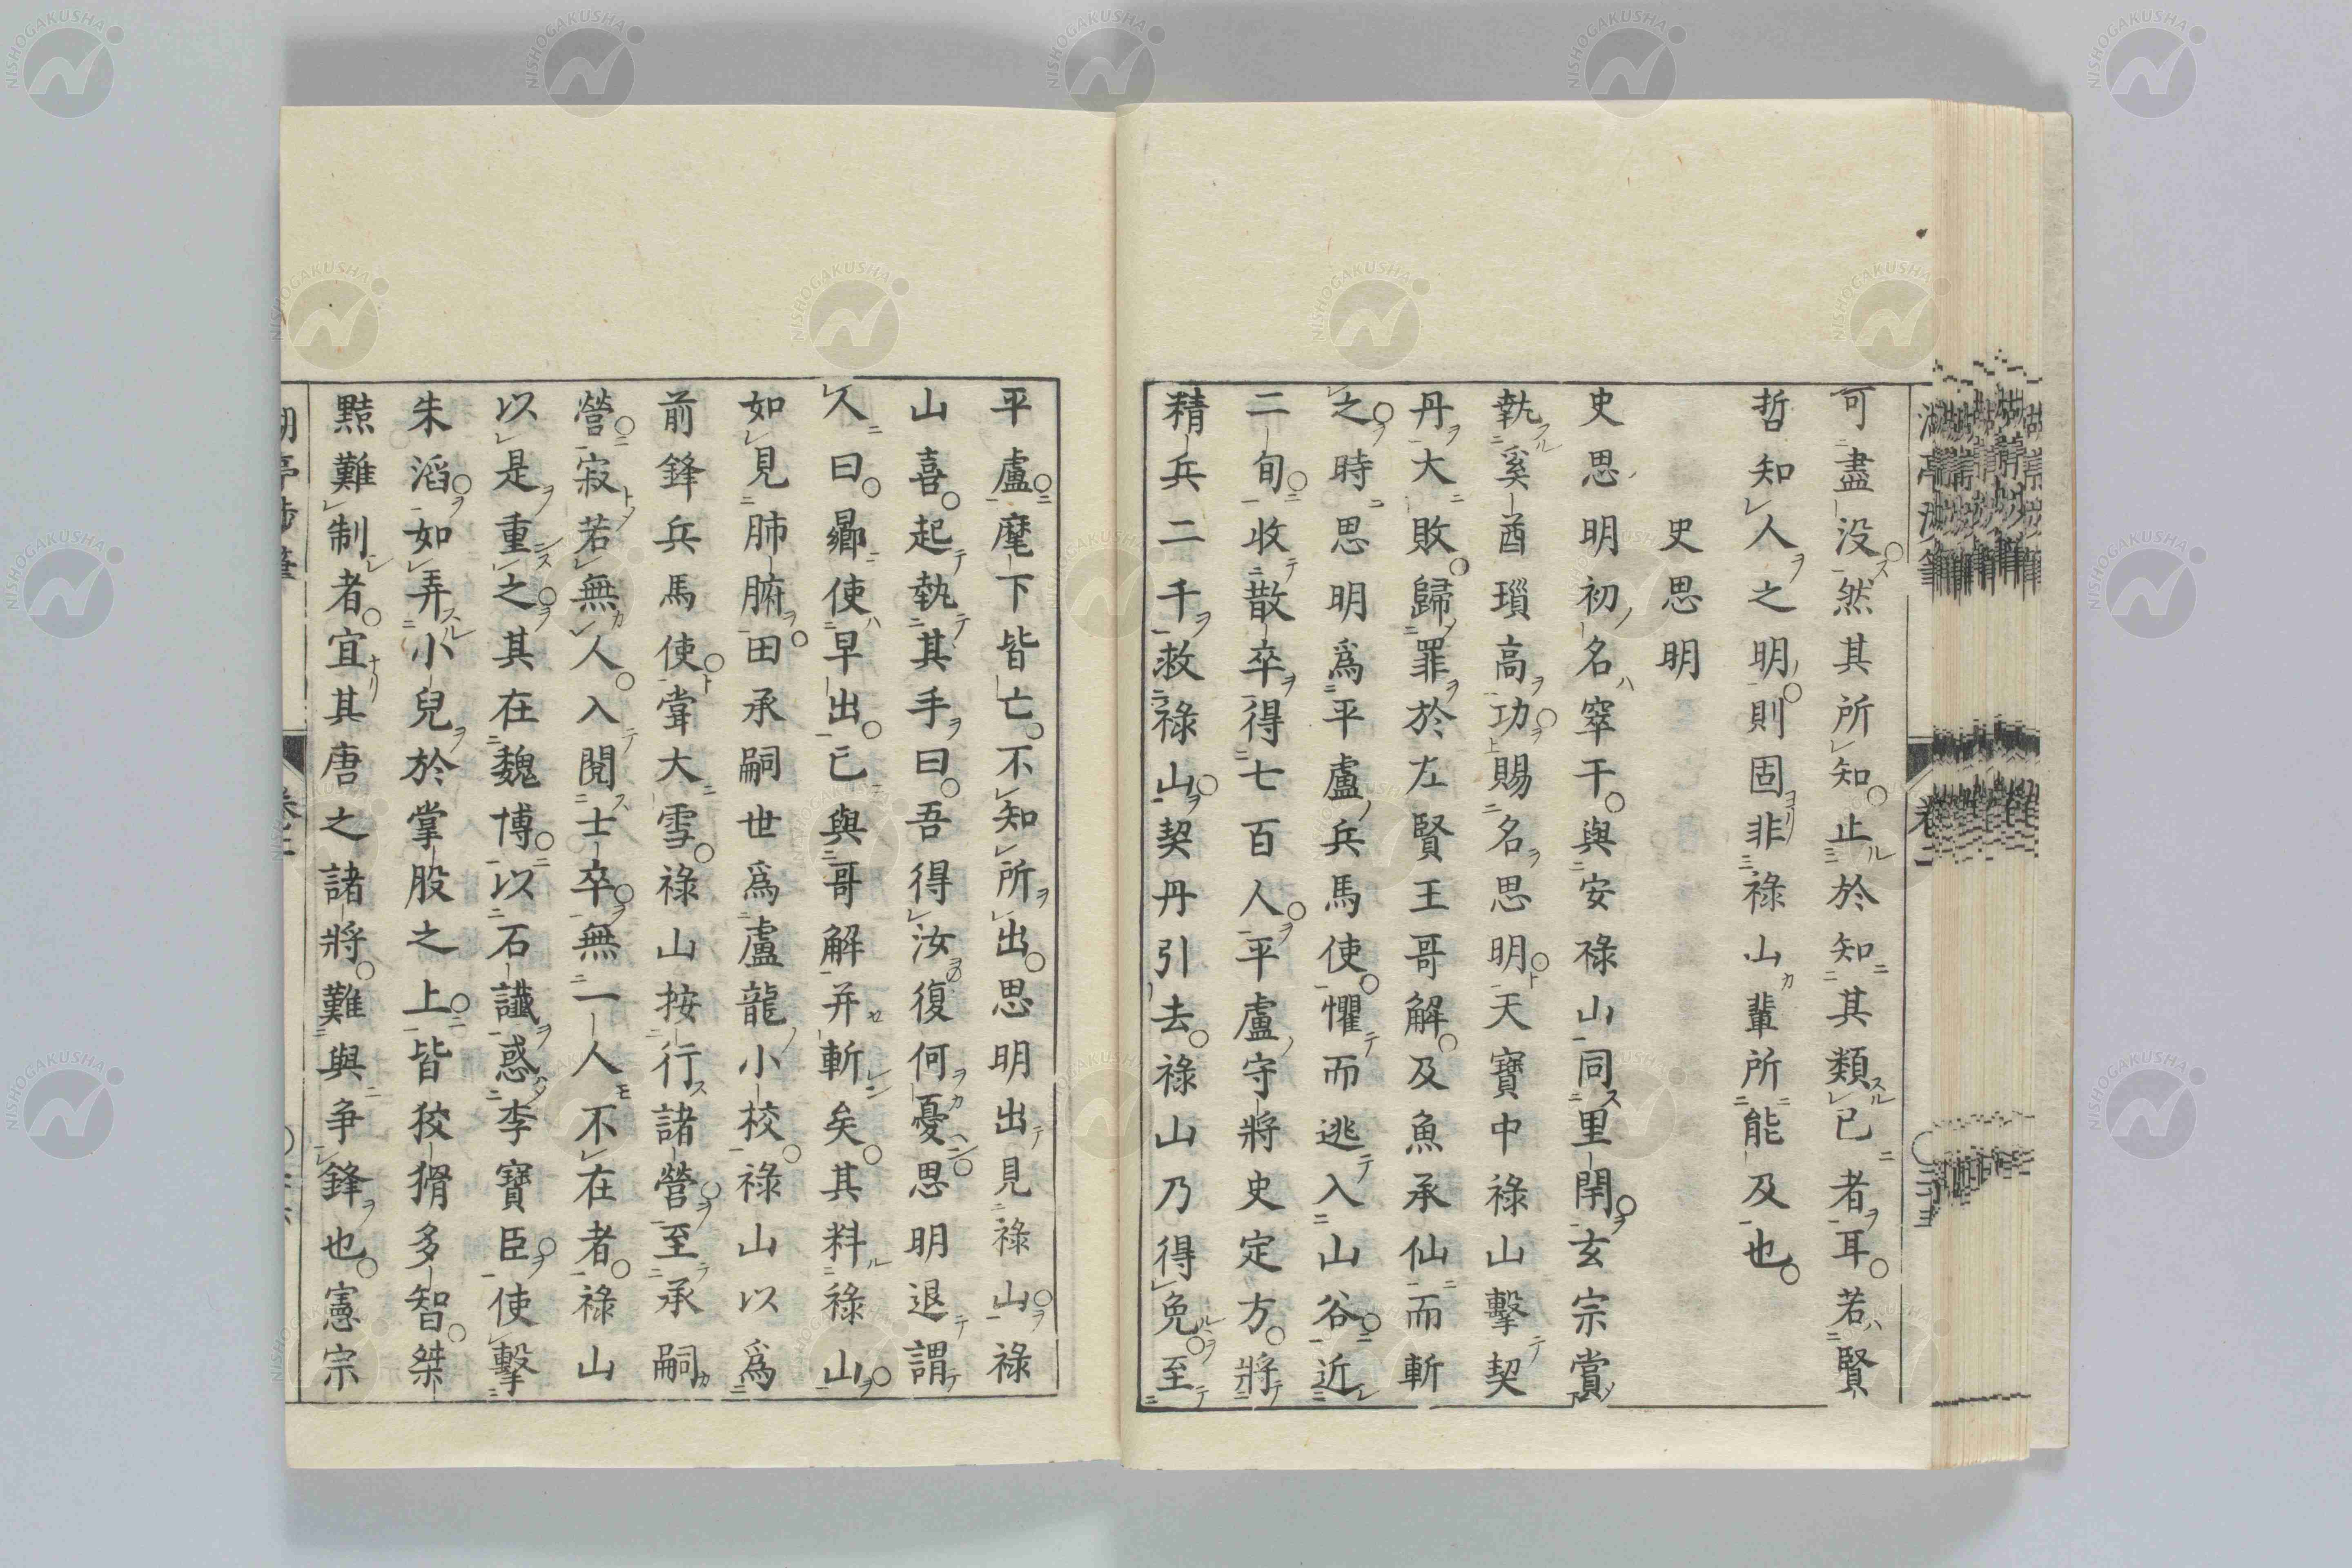 可盡没然其所知止於知其類已者耳若賢
哲知人之明則固非祿山輩所能及也
史思明
史思明初名窣干與安祿山同里閈玄宗賞
執奚酋瑣高功賜名思明天寶中祿山擊契
丹大敗歸罪於左賢王哥解及魚承仙而斬
之時思明爲平盧兵馬使懼而逃入山谷近
二旬收散卒得七百人平盧守將史定方將
精兵二千救祿山契丹引去祿山乃得免至
平盧麾下皆亡不知所出思明出見祿山祿
山喜起執其手曰吾得汝復何憂思明退謂
人曰曏使早出已與哥解并斬矣其料祿山
如見肺腑田承嗣世爲盧龍小校祿山以爲
前鋒兵馬使甞大雪祿山按行諸營至承嗣
營寂若無人入閱士卒無一人不在者祿山
以是重之其在魏博以石讖惑李寶臣使擊
朱滔如弄小兒於掌股之上皆狡猾多智桀
黠難制者宜其唐之諸將難與争鋒也憲宗
NISHOGAKUSHA